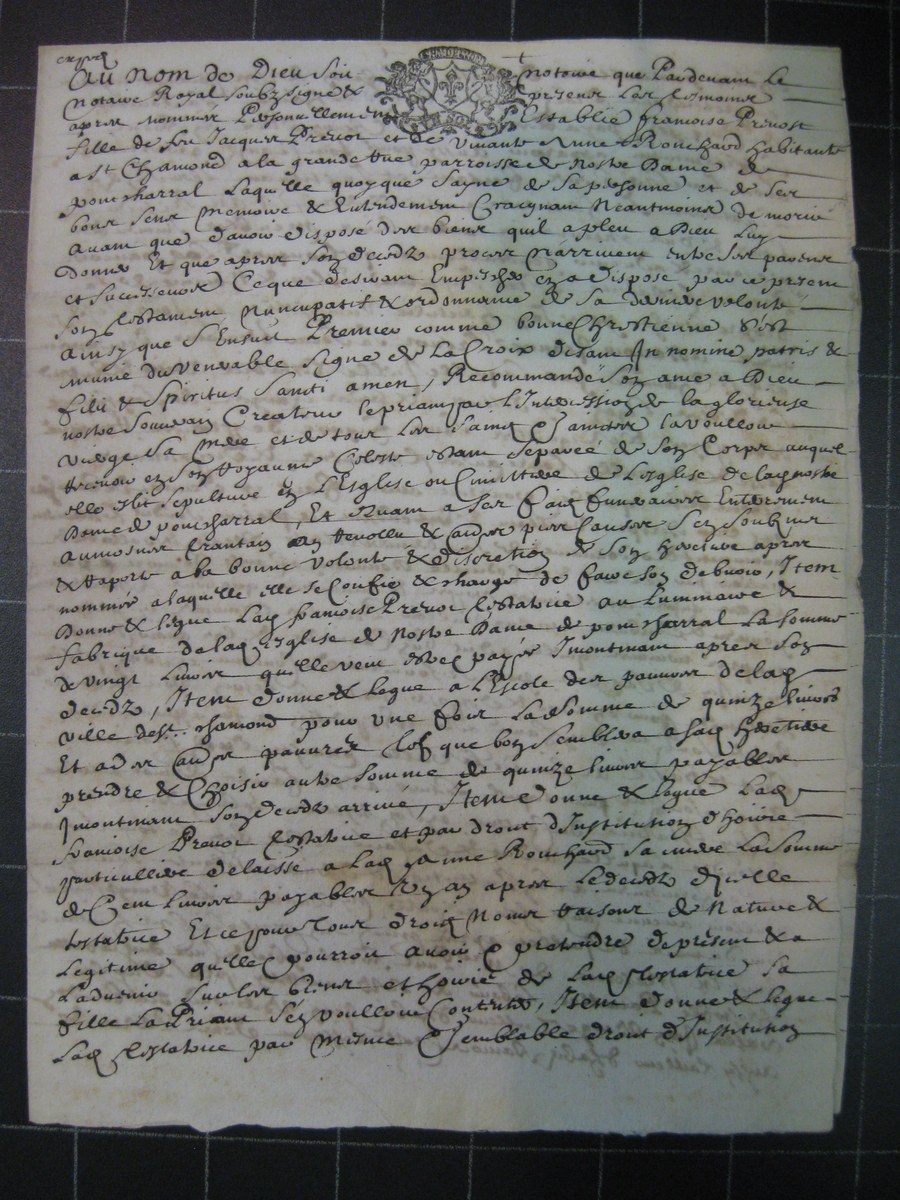 Au nom de Dieu Soit notoire que Pardevant Le
Notaire Royal Soubzsigné & present Les tesmoins
apres nommés Personnellement Establie françoise Prevost
fille de feu Jacques Prevot et de vivante Anne Rouchard habitante
a St Chamond a la grande rue parroisse de Nostre Dame de
pontcharral Laquelle quoyque Sayne de Sa personne et de Ses
bons Sens Memoire & Entendement Craignant Neantmoins de morir
avant que davoir disposé des biens quil a pleu a Dieu Luy
donner Et que apres Son decedz proces narrivent entre Ses parens
et Successeurs Ce que desirant Empescher en a disposé par ce present
Son testament Nuncupatif & ordonnance de Sa derniere volonte
ainsy que S'Ensuit Premier comme bonne Chrestienne S'est
munie du Venerable Signe de La Croix disant In nomine patris &
filii & Spiritus Sancti amen, Recommandé Son ame a Dieu
nostre Souverain Createur le priant par L'Intercession de la glorieuse
vierge Sa Mere et de tous Les Saints & Saintes la voulloir
recevoir en Son Royaume Celeste estant Separée de Son Corps auquel
elle eslit Sepulture en L'Esglise ou Cimittiere de L'esglise de lad nostre
Dame de pontcharral, Et quant a Ses fraix funeraires Enterrement
aumosnes trantain an revollu & autres pies causes S'en Soubzmet
& raporte a la bonne volonté & discretion de Son heretiere apres
nommée a laquelle elle se Confie & charge de faire Son debvoir, Item
Donne & legue Lad françoise Prevot testatrice au Luminaire &
fabrique de lad Esglise de Nostre Dame de pontcharral La Somme
de vingt Livres quelle veut estre payée Incontinant apres Son
decedz, Item donne & legue a L'Escole des pauvres de lad
ville de St. chamond pour une fois La Somme de quinze livres
Et a des autres pauvres tels que bon Semblera a Sad heretiere
prendre & Choisir autre Somme de quinze livres payables
Incontinant Son decedz arrivé, Item donne & legue Lad
françoise Prevot testatrice et par droit d'Institution d'hoirie
particulliere delaisse a Lad Anne Rouchard Sa mere La Somme
de Cent Livres payables Un an apres Le decedz d'icelle
testatrice Et ce pour tous droits Noms raisons de Nature &
Legitime quelle pourroit avoir & pretendre de present & a
Ladvenir Sur les biens et hoirie de Lad testatrice Sa
fille La Priant S'en voulloir Contenter, Item donne & legue
Lad testatrice par Mesme & Semblable droit d'Institution